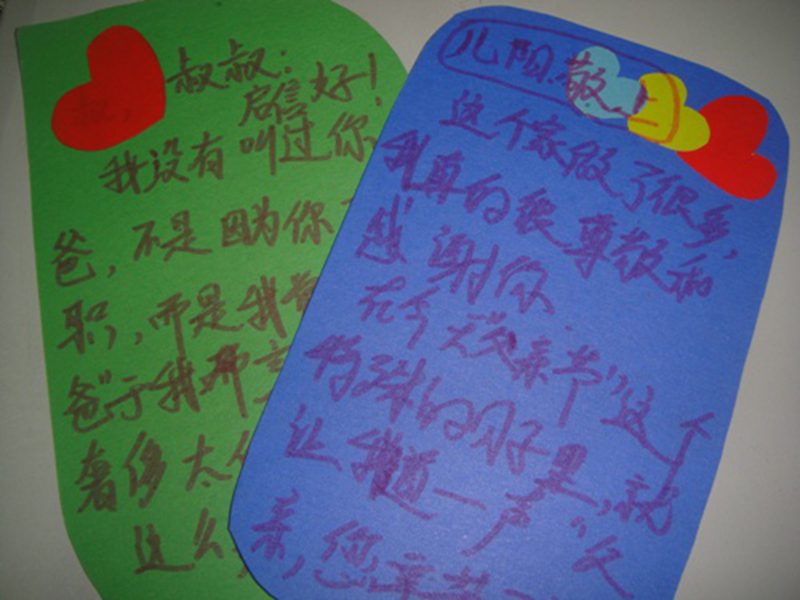 叔叔:
启信好!
我没有叫过你
爸,不是因为你
职,而是我
爸"于我而言
奢侈太
这么
儿阳敬上
这个家做了很多,
我真的很尊敬和
感谢你.
在今天"父亲节"这个
特殊的日子里,就
让我道一声"父
亲,您辛苦